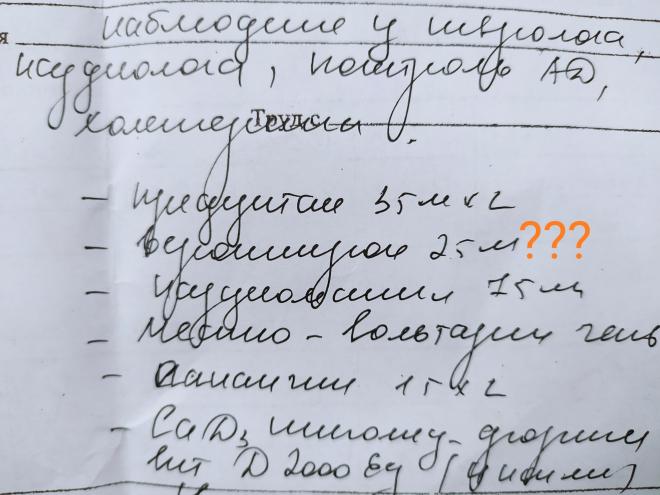 я наблюдение у невролога,
кардиолога, контроль АД,
холестерина.
Трудо
– предуктал 35 м х 2
– верошпирон 25 м ???
– кардиомагнил 75 мг
– местно - вольтарен гель
– панангин 1т х 2
– Са D3 никомед - форте
вит D 2000 Ед